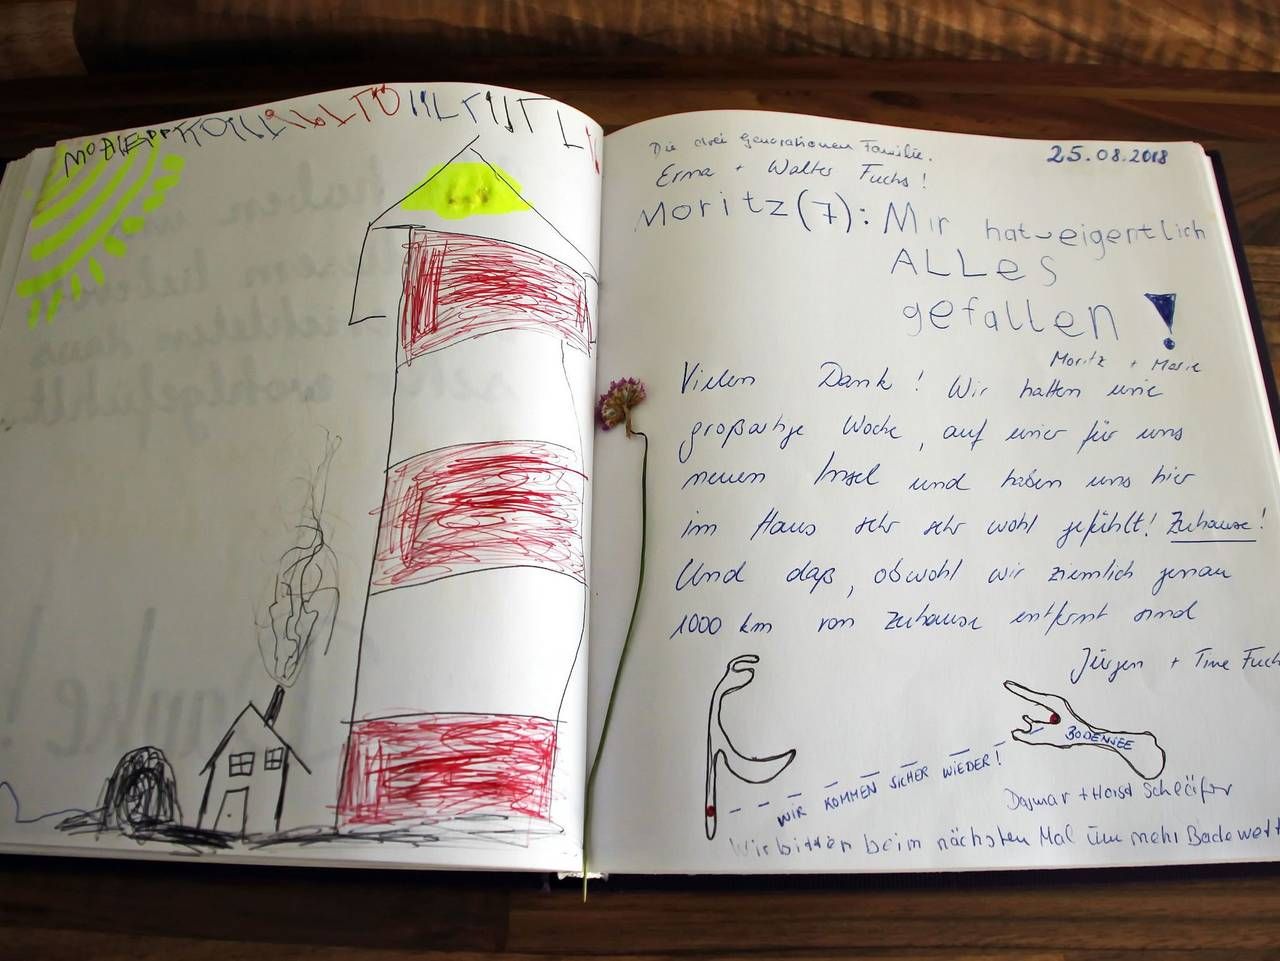 Die drei Generationen Familie.
25.08.2018
Erma + Walter Fuchs!
Moritz (7): Mir hat eigentlich
ALLes
gefallen!
Moritz + Marie
Vielen Dank! Wir hatten eine
großartige Woche, auf einer für uns
neuen Insel und haben uns hier
im Haus sehr sehr wohl gefühlt! Zuhause!
Und daß, obwohl wir ziemlich genau
1000 km von Zuhause entfernt sind
Jürgen + Tine Fuch
BODENSEE
WIR KOMMEN SICHER WIEDER!
Dagmar + Horst Schläfer
Wir bitten beim nächsten Mal um mehr Badewett
haben
wohlgefühlt.
Danke!